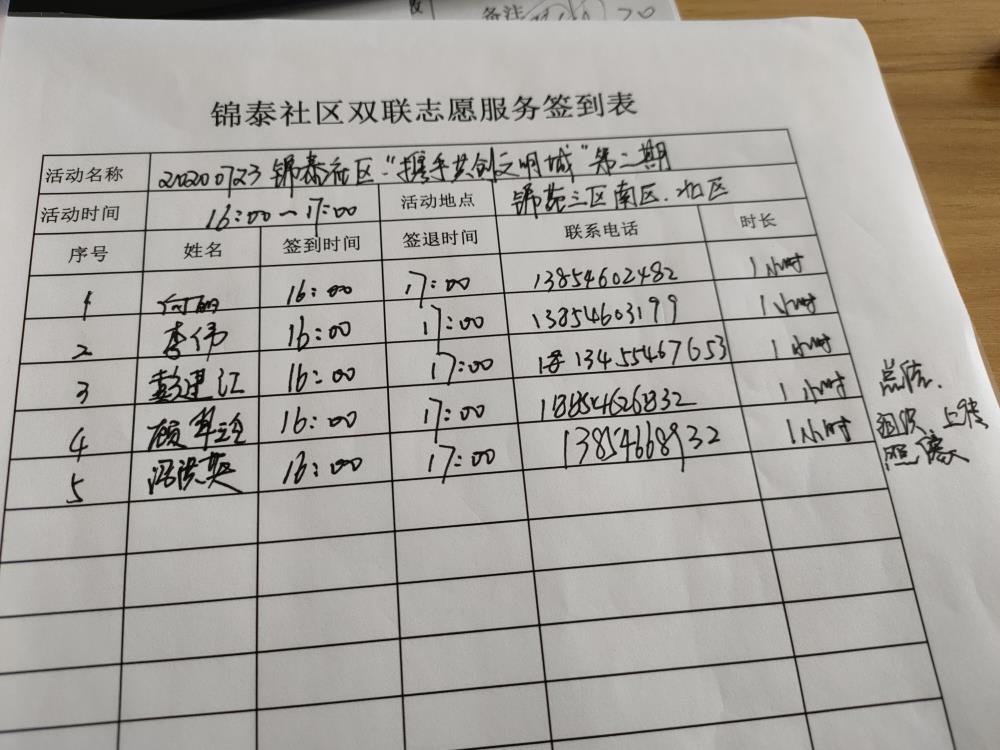 备注
锦泰社区双联志愿服务签到表
活动名称 20200723 锦泰社区"携手共创文明城"第二期
活动时间 16:00～17:00 活动地点 锦苑三区南区、北区
序号 姓名 签到时间 签退时间 联系电话 时长
1 向丽 16:00 17:00 13854602482 1小时
2 李伟 16:00 17:00 13854603199 1小时
3 彭建江 16:00 17:00 13455467653 1小时
4 顾 16:00 17:00 18854626832 1小时
5 冯洪英 16:00 17:00 13854668932 1小时
总结、
组织、上传
照像